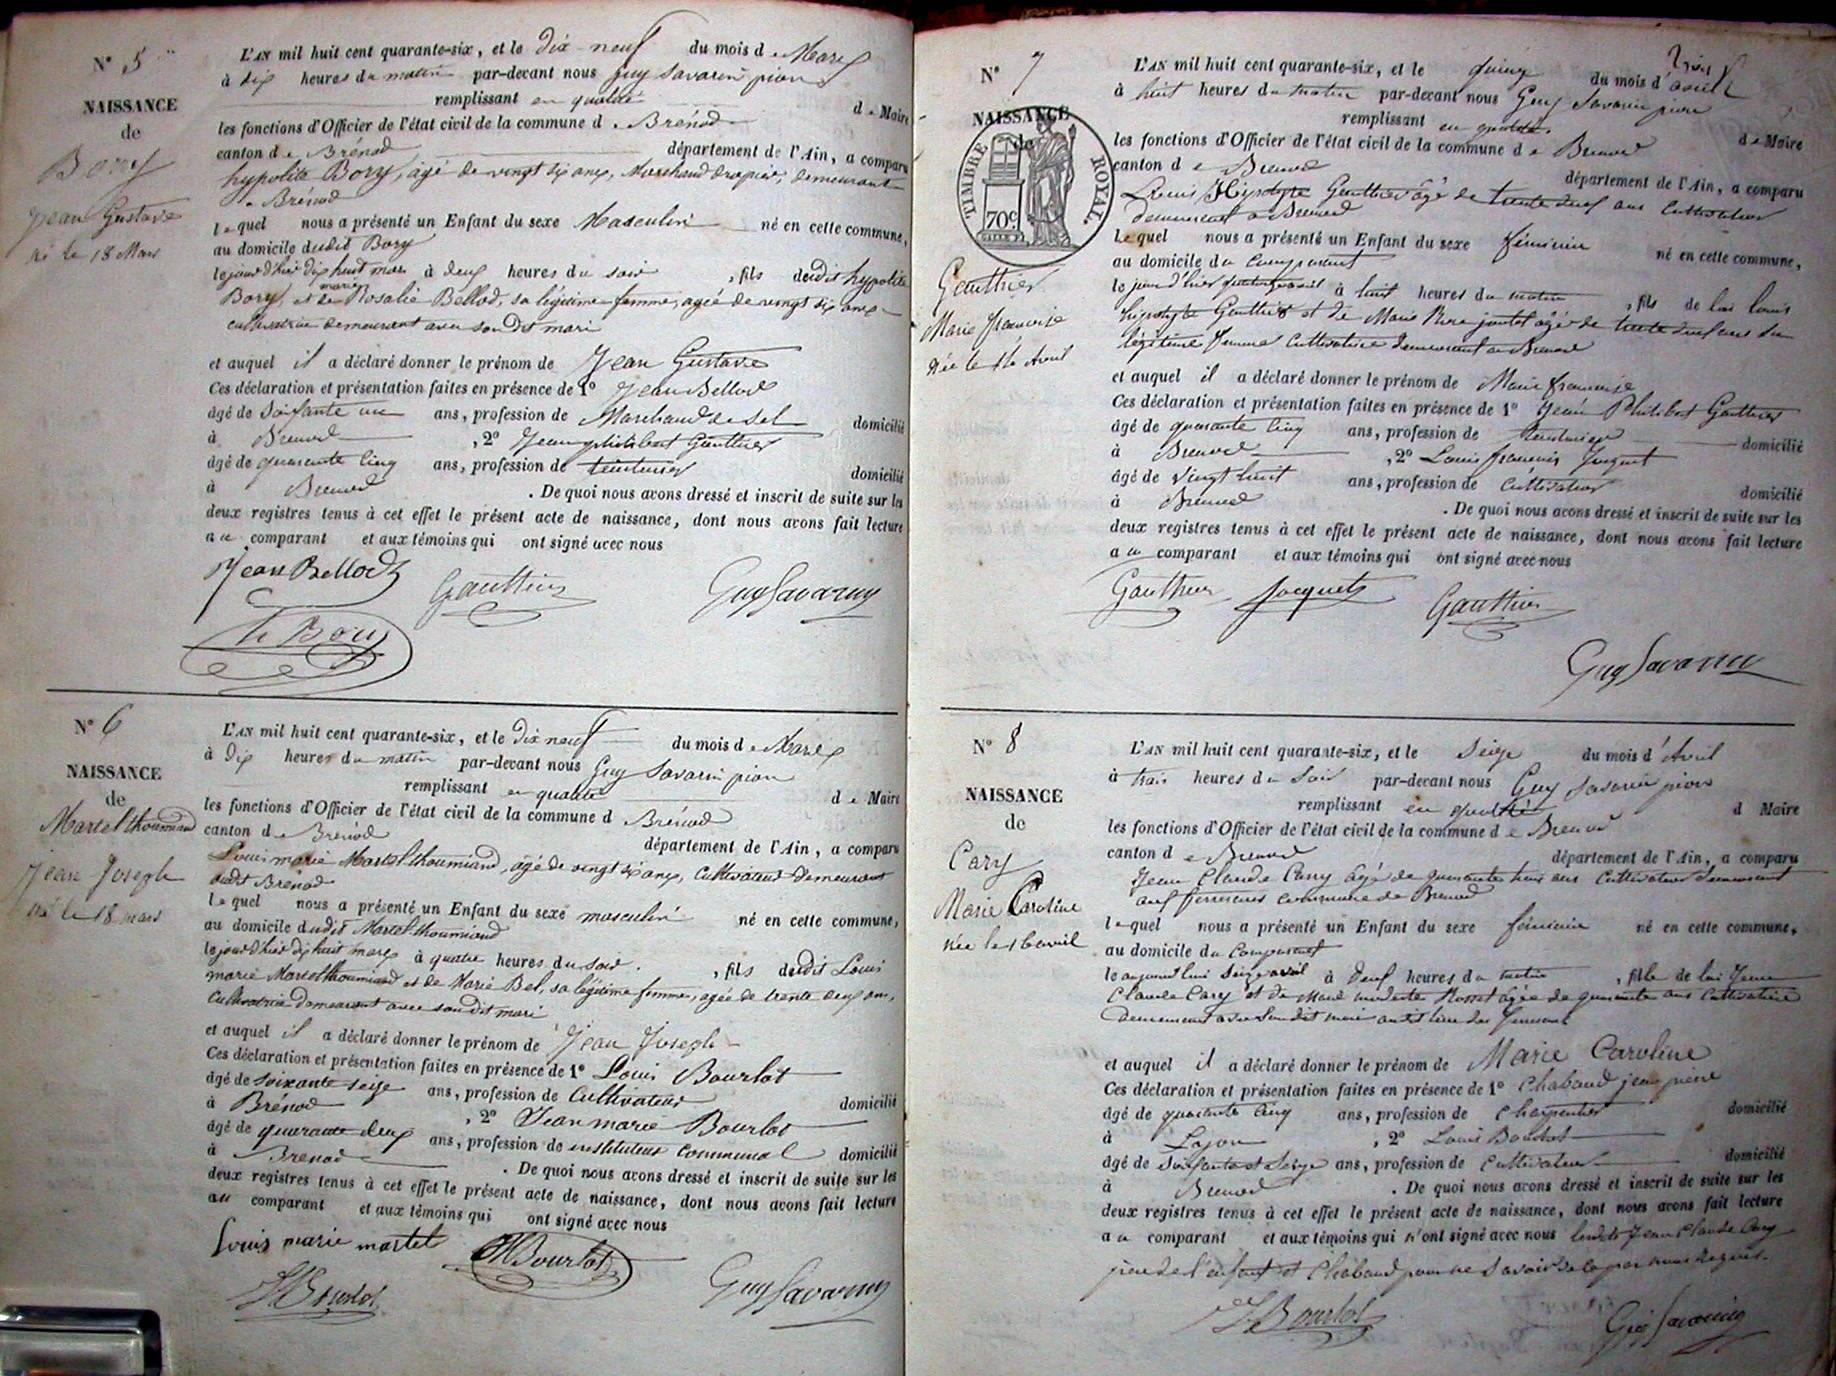 N° 5
NAISSANCE
de
Bory
Jean Gustave
né le 18 Mars
L'AN mil huit cent quarante-six, et le dix-neuf du mois de Mars
à dix heures du matin par-devant nous Guy Savarin pion
remplissant en qualité de Maire
les fonctions d'Officier de l'état civil de la commune d Brénod
canton de Brénod département de l'Ain, a comparu
hypolite Bory, agé de vingt six ans, Marchand drapier, demeurant
a Brénod
lequel nous a présenté un Enfant du sexe Masculin né en cette commune,
au domicile dudit Bory
le jour d'hier dix huit mars à deux heures du soir, fils dudit hypolite
Bory, et de marie Rosalie Bellod, sa légitime femme, agée de vingt six ans
cultivatrice demeurant avec son dit mari
et auquel il a déclaré donner le prénom de Jean Gustave
Ces déclaration et présentation faites en présence de 1° Jean Bellod
âgé de soixante un ans, profession de Marchand de sel domicilié
à Brenod, 2° Jean philibert Gauthier
âgé de quarante cinq ans, profession de teinturier domicilié
à Brenod. De quoi nous avons dressé et inscrit de suite sur les
deux registres tenus à cet effet le présent acte de naissance, dont nous avons fait lecture
au comparant et aux témoins qui ont signé avec nous
Jean Bellod Gauthier Guy Savarin
h Bory
N° 6
NAISSANCE
de
Martel thoumiand
Jean Joseph
né le 18 mars
L'AN mil huit cent quarante-six, et le dix neuf du mois de Mars
à dix heures du matin par-devant nous Guy Savarin pion
remplissant en qualité de Maire
les fonctions d'Officier de l'état civil de la commune d Brénod
canton de Brénod département de l'Ain, a comparu
Louis marie Martel thoumiand, agé de vingt six ans, Cultivateur demeurant
audit Brénod
lequel nous a présenté un Enfant du sexe masculin né en cette commune,
au domicile dudit Martel thoumiand
le jour d'hier dix huit mars à quatre heures du soir, fils dudit Louis
marie Martel thoumiand et de Marie Bel, sa légitime femme, agée de trente deux ans,
Cultivatrice demeurant avec son dit mari
et auquel il a déclaré donner le prénom de Jean Joseph
Ces déclaration et présentation faites en présence de 1° Louis Bourlot
âgé de soixante seize ans, profession de Cultivateur domicilié
à Brénod, 2° Jean marie Bourlot
âgé de quarante deux ans, profession de instituteur communal domicilié
à Brenod. De quoi nous avons dressé et inscrit de suite sur les
deux registres tenus à cet effet le présent acte de naissance, dont nous avons fait lecture
au comparant et aux témoins qui ont signé avec nous
Louis marie martel Bourlot
Bourlot Guy Savarin
N° 7
NAISSANCE
de
TIMBRE ROYAL
70c
Gauthier
Marie francoise
née le 14 Avril
L'AN mil huit cent quarante-six, et le quinze du mois d'avril
à huit heures du matin par-devant nous Guy Savarin pion
remplissant en qualité de Maire
les fonctions d'Officier de l'état civil de la commune de Brenod
canton de Brenod département de l'Ain, a comparu
Louis Hypolyte Gauthier âgé de trente neuf ans Cultivateur
demeurant a Brenod
lequel nous a présenté un Enfant du sexe féminin né en cette commune,
au domicile du comparant
le jour d'hier quatorze avril à huit heures du matin, fils de lui Louis
hypolyte Gauthier et de Marie âgé de trente ans sa
légitime femme Cultivatrice demeurant a Brenod
et auquel il a déclaré donner le prénom de Marie francoise
Ces déclaration et présentation faites en présence de 1° Jean Philibert Gauthier
âgé de quarante cinq ans, profession de teinturier domicilié
à Brenod, 2° Louis francois Jacquet
âgé de vingt huit ans, profession de cultivateur domicilié
à Brenod. De quoi nous avons dressé et inscrit de suite sur les
deux registres tenus à cet effet le présent acte de naissance, dont nous avons fait lecture
au comparant et aux témoins qui ont signé avec nous
Gauthier Jacquet Gauthier
Guy Savarin
N° 8
NAISSANCE
de
Cary
Marie Caroline
née le 16 avril
L'AN mil huit cent quarante-six, et le seize du mois d'Avril
à trois heures du soir par-devant nous Guy Savarin pion
remplissant en qualité d Maire
les fonctions d'Officier de l'état civil de la commune de Brenod
canton de Brenod département de l'Ain, a comparu
Jean Claude Cary âgé de quarante ans Cultivateur demeurant
aux commune de Brenod
lequel nous a présenté un Enfant du sexe féminin né en cette commune,
au domicile du Comparant
le aujourd'hui seize avril à deux heures du matin, fille de lui Jean
Claude Cary et de Marie modeste Rosset âgée de quarante ans Cultivatrice
demeurant avec son dit mari
et auquel il a déclaré donner le prénom de Marie Caroline
Ces déclaration et présentation faites en présence de 1° Chabaud jean pierre
âgé de quarante cinq ans, profession de Charpentier domicilié
à, 2° Louis Bourlot
âgé de soixante et seize ans, profession de cultivateur domicilié
à Brenod. De quoi nous avons dressé et inscrit de suite sur les
deux registres tenus à cet effet le présent acte de naissance, dont nous avons fait lecture
au comparant et aux témoins qui n'ont signé avec nous Jean Claude Cary
père de l'enfant et Chabaud pour ne savoir de ce par nous requis.
Bourlot Guy Savarin